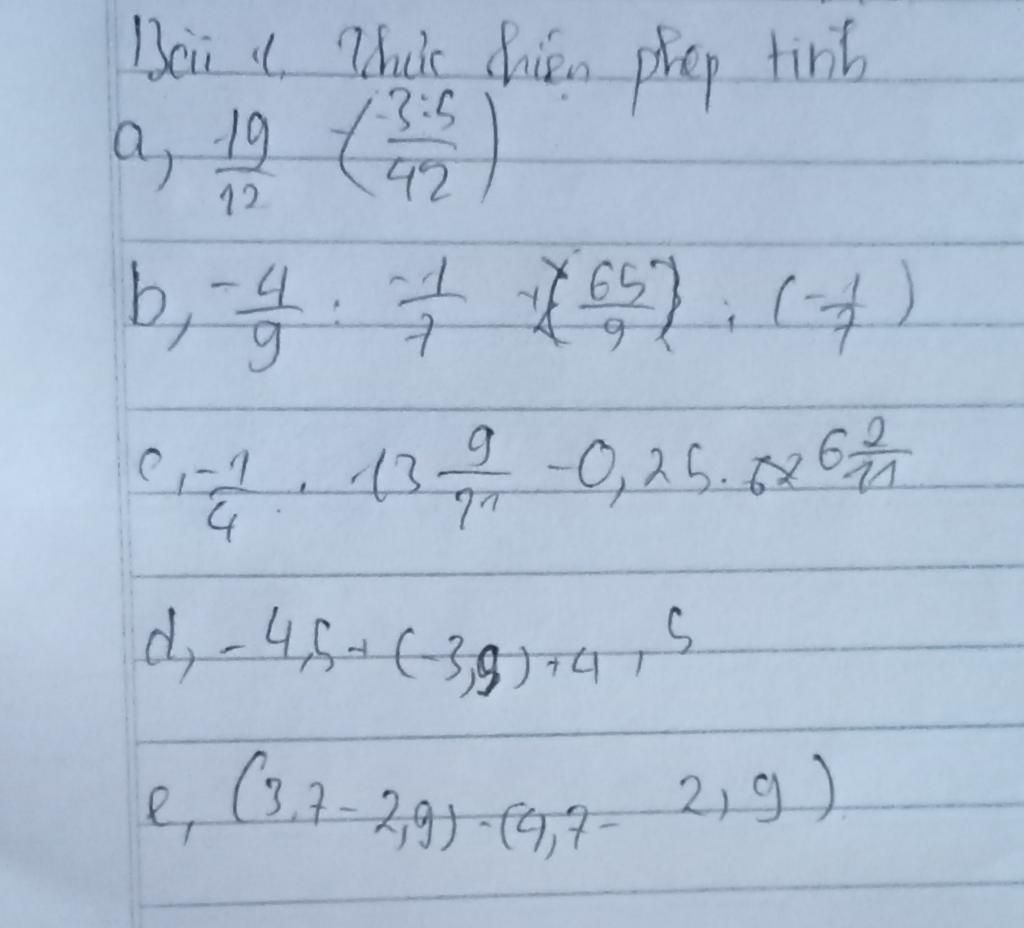 Bài 1. Thức hiện phep tinh
a, 19/12 - (-3:5/42)
b, -4/9 : -1/7 + (65/9) : (-1/7)
c, -1/4 . 13 9/11 - 0,25. 6 2/11
d, - 4,5 + (-3,9) + 4,5
e, (3,7 - 2,9) - (4,7 - 2,9)